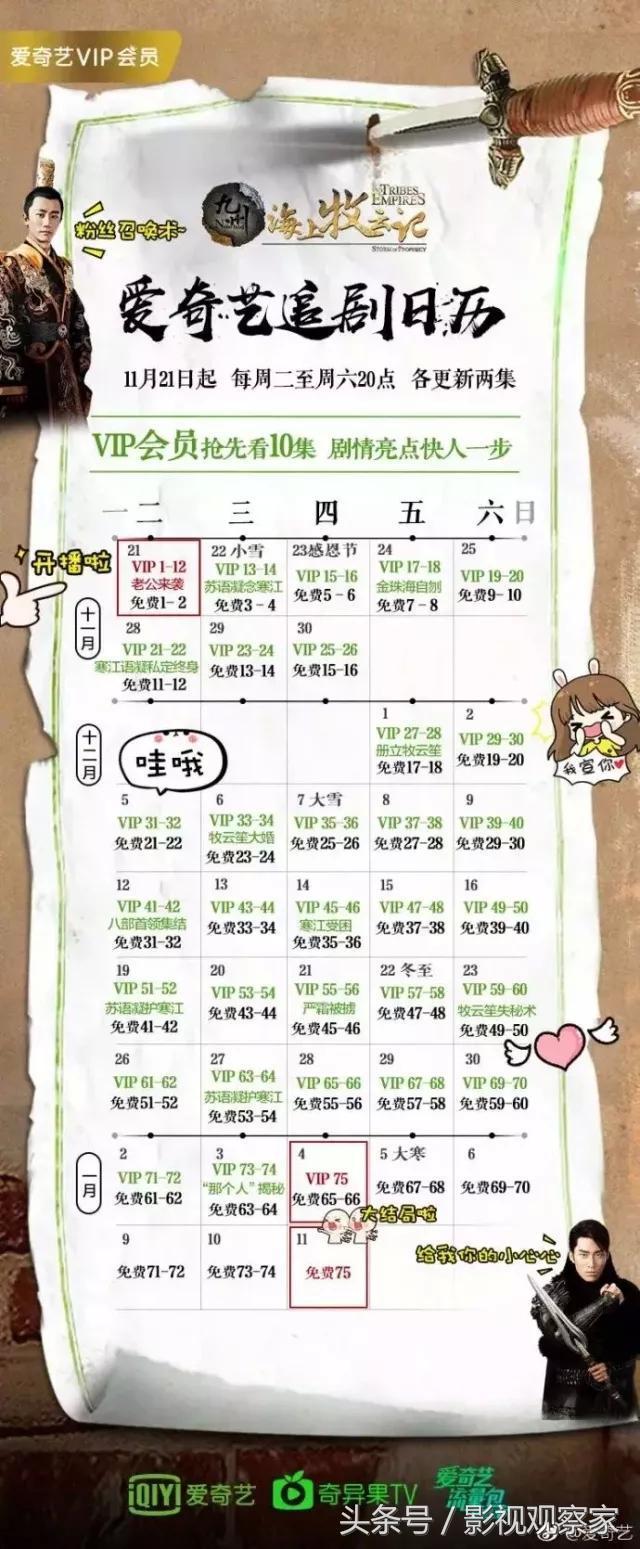 爱奇艺VIP会员
粉丝召唤术~
九州
海上牧云记
TRIBES
EMPIRES
STORM OF PROPHECY
爱奇艺追剧日历
11月21日起 每周二至周六20点 各更新两集
VIP会员抢先看10集 剧情亮点快人一步
一 二 三 四 五 六 日
开播啦
十一月
21
VIP 1-12
老公来袭
免费1-2
22 小雪
VIP 13-14
苏语凝念寒江
免费3-4
23感恩节
VIP 15-16
免费5-6
24
VIP 17-18
金珠海自刎
免费7-8
25
VIP 19-20
免费9-10
28
VIP 21-22
寒江语凝私定终身
免费11-12
29
VIP 23-24
免费13-14
30
VIP 25-26
免费15-16
十二月
哇哦
1
VIP 27-28
册立牧云笙
免费17-18
2
VIP 29-30
免费19-20
我宣你
5
VIP 31-32
免费21-22
6
VIP 33-34
牧云笙大婚
免费23-24
7 大雪
VIP 35-36
免费25-26
8
VIP 37-38
免费27-28
9
VIP 39-40
免费29-30
12
VIP 41-42
八部首领集结
免费31-32
13
VIP 43-44
免费33-34
14
VIP 45-46
寒江受困
免费35-36
15
VIP 47-48
免费37-38
16
VIP 49-50
免费39-40
19
VIP 51-52
苏语凝护寒江
免费41-42
20
VIP 53-54
免费43-44
21
VIP 55-56
严霜被掳
免费45-46
22 冬至
VIP 57-58
免费47-48
23
VIP 59-60
牧云笙失秘术
免费49-50
26
VIP 61-62
免费51-52
27
VIP 63-64
苏语凝护寒江
免费53-54
28
VIP 65-66
免费55-56
29
VIP 67-68
免费57-58
30
VIP 69-70
免费59-60
一月
2
VIP 71-72
免费61-62
3
VIP 73-74
“那个人”揭秘
免费63-64
4
VIP 75
免费65-66
5 大寒
免费67-68
6
免费69-70
大结局啦
9
免费71-72
10
免费73-74
11
免费75
给我你的小心心
iQIYI 爱奇艺
奇异果TV
爱奇艺
流量包
头条号/影视观察家
@爱奇艺